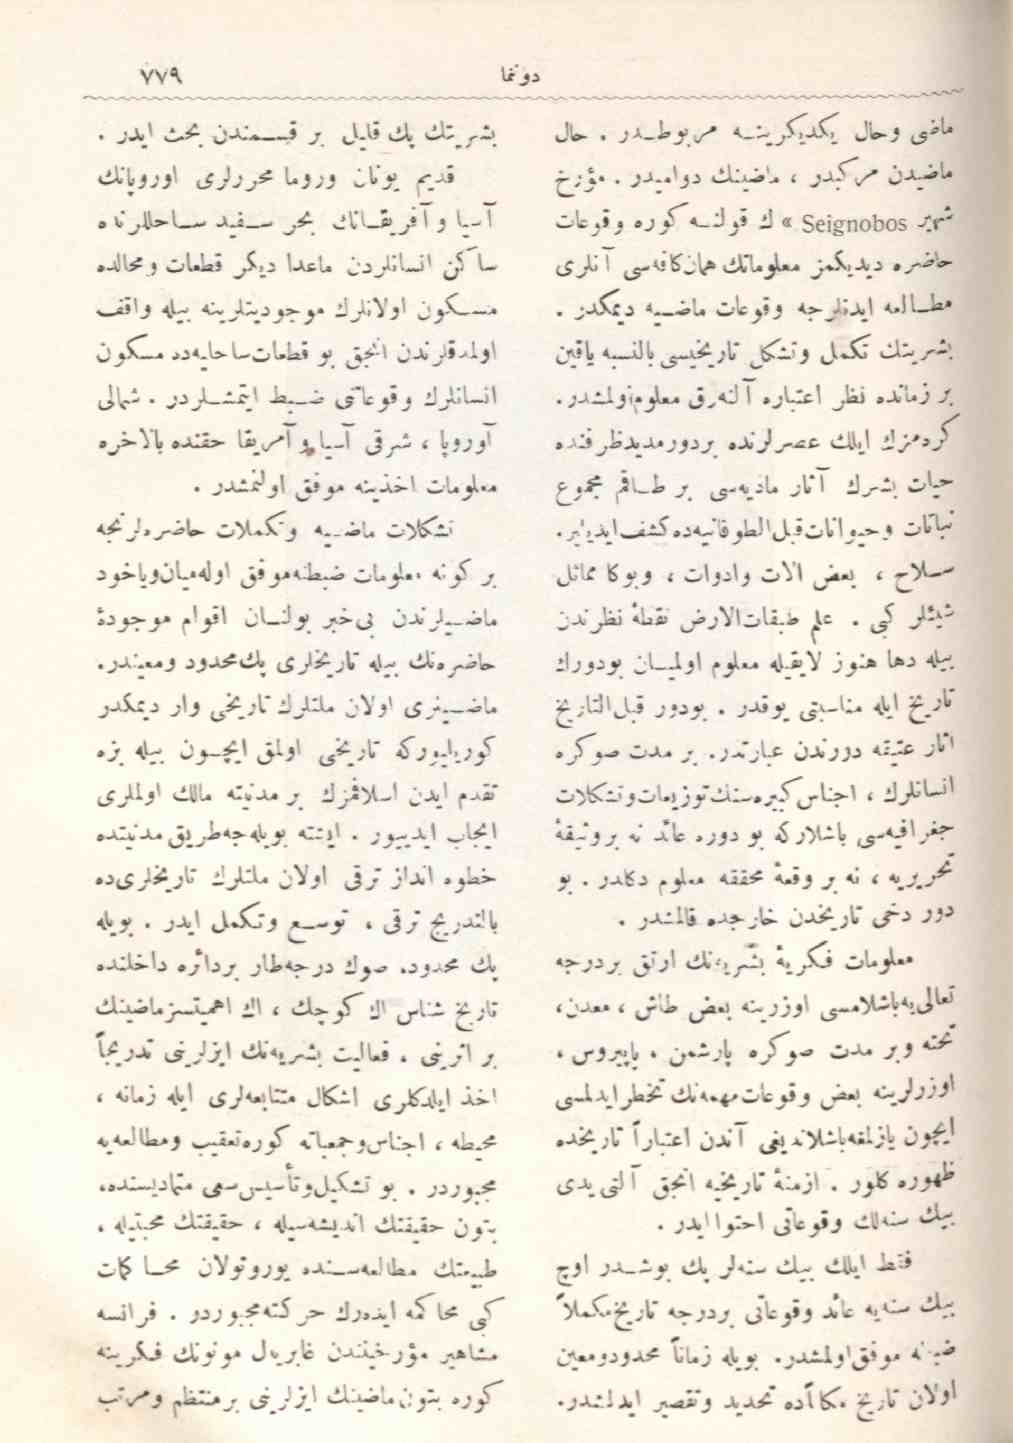 دوننما
٧٧٩
ماضی وحال یكدیكرینـه مربوطـدر . حال
ماضیدن مركبدر ، ماضینك دوامیدر . مؤرخ
شهیر Seignobos » ك قولنـه كوره وقوعات
حاضره دیدیكمز معلوماتك همان كافه‌سی آنلری
مطـالعه ایدنلرجه وقوعات ماضـیه دیمكدر .
بشریتك تكمل وتشكل تاریخیسی بالنسبه یاقین
بر زمانده نظر اعتباره آلنه‌رق معلوم اولمشدر.
كره‌مزك ایلك عصرلرنده بردورمدیدظرفنده
حیات بشرك آثار مادیه‌سی بر طـاقم مجموع
نباتات وحیوانات‌قبل‌الطوفانیه‌ده كشف ایدیلیر.
سـلاح ، بعض الات وادوات ، وبوكا مماثل
شیئلر كبی . علم طبقات‌الارض نقطهٔ نظرندن
بیله دها هنوز لایقیله معلوم اولمیـان بودورك
تاریخ ایله مناسبتی یوقدر . بودور قبل‌التاریخ
اثار عتیقه دورندن عبارتدر. بر مدت صوكره
انسانلرك ، اجناس كبیره‌سنك‌توزیعات‌وتشكلات
جغرافیه‌سی باشلاركه بو دوره عائد نه بروثیقهٔ
تحریریه ، نه بر وقعهٔ محققه معلوم دكلدر . بو
دور دخی تاریخدن خارجده قالمشدر .
معلومات فكریهٔ بشریه‌نك ارتق بردرجه
تعالی‌یه‌باشلامسی اوزرینه بعض طاش ، معدن،
تخته وبر مدت صوكره پارشمن ، پاپیروس ،
اوزرلرینه بعض وقوعات‌مهمه‌نك تخطرایدلمسی
ایچون یازلمغه‌باشلاندیغی آندن اعتباراً تاریخده
ظهوره كلور . ازمنهٔ تاریخیه انجق آلتی یدی
بیك سنه‌لك وقوعاتی احتوا ایدر .
فقط ایلك بیك سنه‌لر پك بوشـدر اوچ
بیك سنه‌یه عائد وقوعاتی بردرجه تاریخ‌مكملاً
ضبطه موفق‌اولمشدر. بویله زماناً محدودومعین
اولان تاریخ مكاناًده تحدید وتقصیر ایدلمشدر.
بشریتك پك قلیل بر قسـمندن بحث ایدر .
قدیم یونان وروما محررلری اوروپانك
آسیا و آفریقـانك بحر سـفید سـاحللرنده
ساكن انسانلردن ماعدا دیكر قطعات ومحالده
مسـكون اولانلرك موجودیتلرینه بیله واقف
اولمدقلرندن انجق بو قطعات‌ساحلیه‌ده مسكون
انسانلرك وقوعاتنی ضـبط ایتمشـلردر . شمالی
آوروپا ، شرقی آسیا و آمریقا حقنده بالاخره
معلومات اخذینه موفق اولنمشدر .
تشكلات ماضـیه وتكملات حاضره‌لرنجه
بر كونه معلومات ضبطنه‌موفق اوله‌میان‌ویاخود
ماضـیلرندن بی‌خبر بولنـان اقوام موجودهٔ
حاضره‌نك بیله تاریخلری پك‌محدود ومعیندر.
ماضـیلری اولان ملتلرك تاریخی وار دیمكدر
كوریلیوركه تاریخی اولمق ایچـون بیله بزه
تقدم ایدن اسلافمزك بر مدنیته مالك اولملری
ایجاب ایدییور . ایشته بویله‌جه‌طریق‌مدنیتده
خطوه انداز ترقی اولان ملتلرك تاریخلری‌ده
بالتدریج ترقی ، توسـع وتكمل ایدر . بویله
پك محدود، صوك درجه‌طار بردائره داخلنده
تاریخ شناس اك كوچك ، اك اهمیتسزماضینك
بر اثرینی ، فعالیت بشریه‌نك ایزلرینی تدریجاً
اخذ ایلدكلری اشكال متتابعه‌لری ایله زمانه ،
محیطه ، اجناس‌وجمعیاته كوره‌تعقیب ومطالعه‌یه
مجبوردر . بو تشكیل‌وتأسیس‌سعی متمادیسنده،
بتون حقیقتك اندیشه‌سیله ، حقیقتك محبتیله ،
طبیعتك مطالعه‌سـنده یوروتولان محـاكمات
كبی محاكمه ایده‌رك حركته‌مجبوردر . فرانسه
مشاهیر مؤرخیندن غابریه‌ل مونونك فكرینه
كوره بتون‌ماضینك ایزلرینی برمنتظم ومرتب